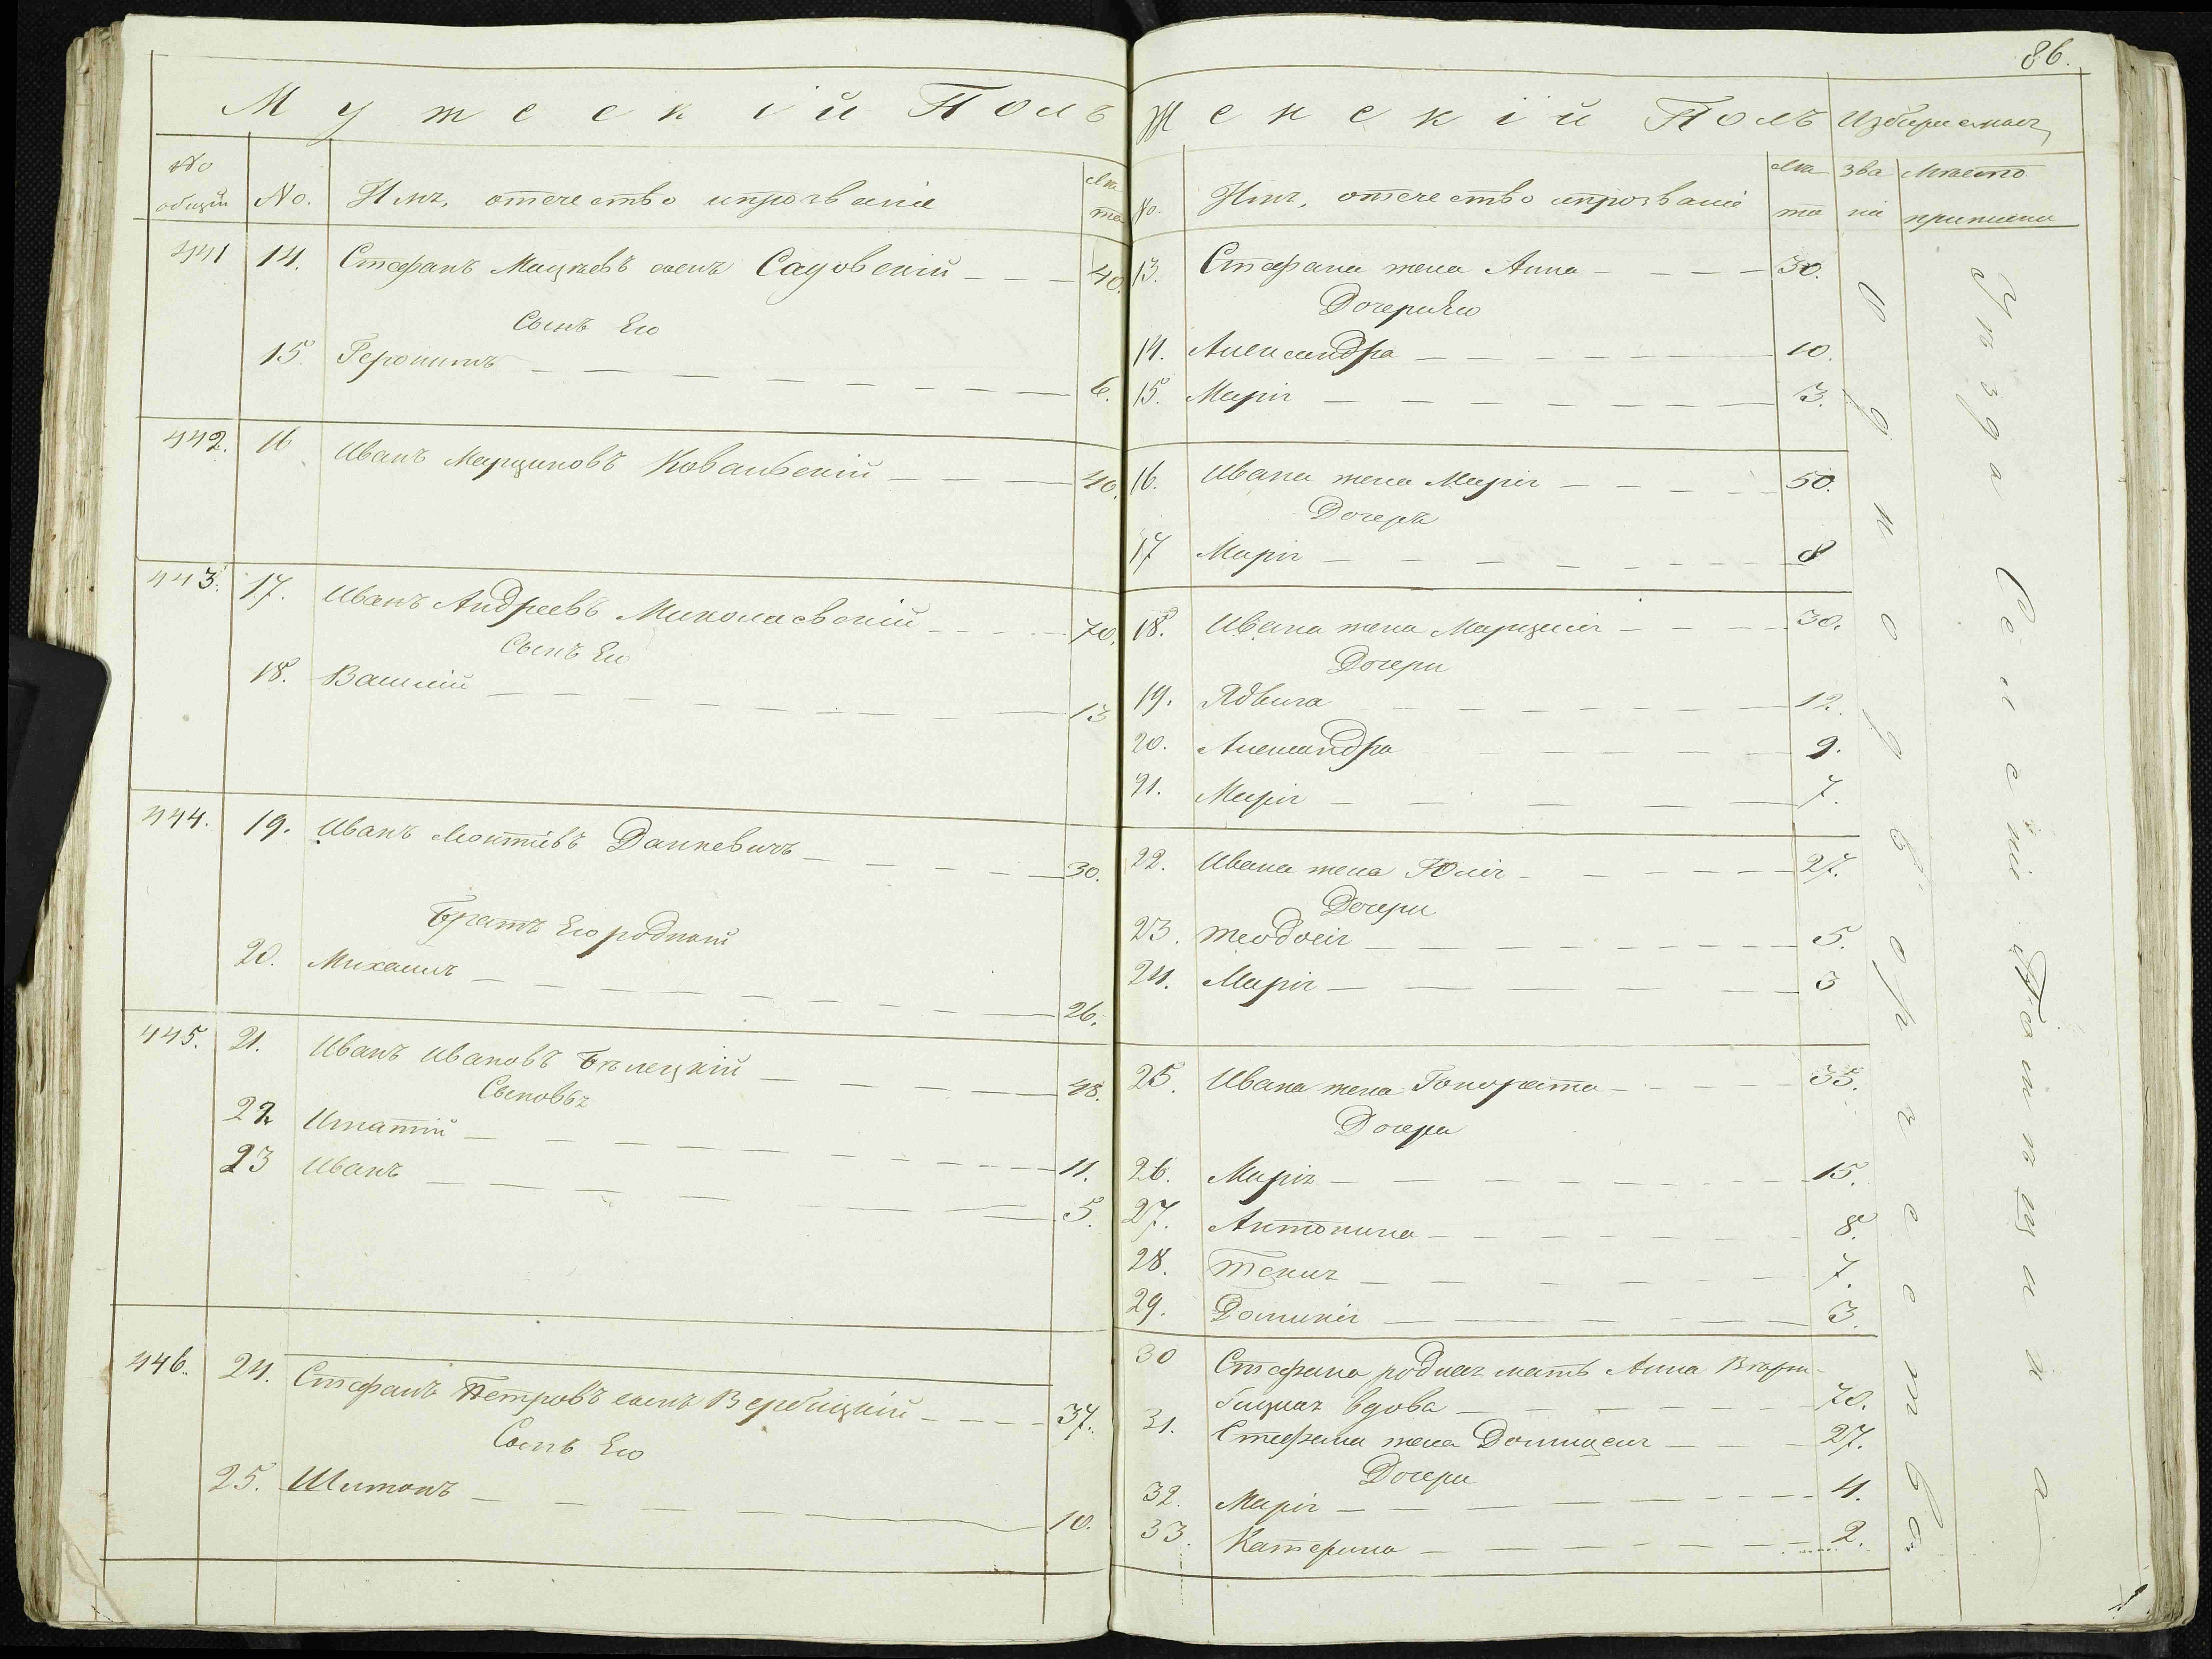 86.
Мужескій Полъ
№ общій
№.
Имя, отечество и прозваніе
Лѣта
441 14. Стефанъ Мацѣевъ сынъ Садовскій 40.
Сынъ Его
15. Геронимъ 6.
442. 16 Иванъ Марциновъ Ковальскій 40.
443. 17. Иванъ Андреевъ Миколаевскій 70.
Сынъ Его
18. Василій 13
444. 19. Иванъ Данкевичъ 30.
Братъ Его родной
20. Михаилъ 26.
445. 21. Иванъ Ивановъ Бѣлецкій 48.
Сыновья
22 Игнатій 11.
23 Иванъ 5.
446. 24. Стефанъ Петровъ сынъ Вербицкій 37.
Сынъ Его
25. Шимонъ 10.
Женскій Полъ
Избираемыя
№.
Имя, отечество и прозваніе
Лѣта
званія
Мѣсто приписки
13. Стефана жена Анна 30.
Дочери Его
14. Александра 10.
15. Марія 3.
16. Ивана жена Марія 50.
Дочеря
17 Марія 8
18. Ивана жена Марцелія 30.
Дочери
19. Ядвига 12.
20. Александра 9.
21. Марія 7.
22. Ивана жена Юлія 27.
Дочери
23. Теодосія 5.
24. Марія 3
25. Ивана жена Гонората 35.
Дочери
26. Марія 15.
27. Антонина 8.
28. Текля 7.
29. Доминія 3.
30 Стефана родная мать Анна Верби-
бицкая вдова 70.
31. Стефана жена Домицеля 27.
Дочери
32. Марія 4.
33. Катерина 2.
Однодворчество
Уѣзда